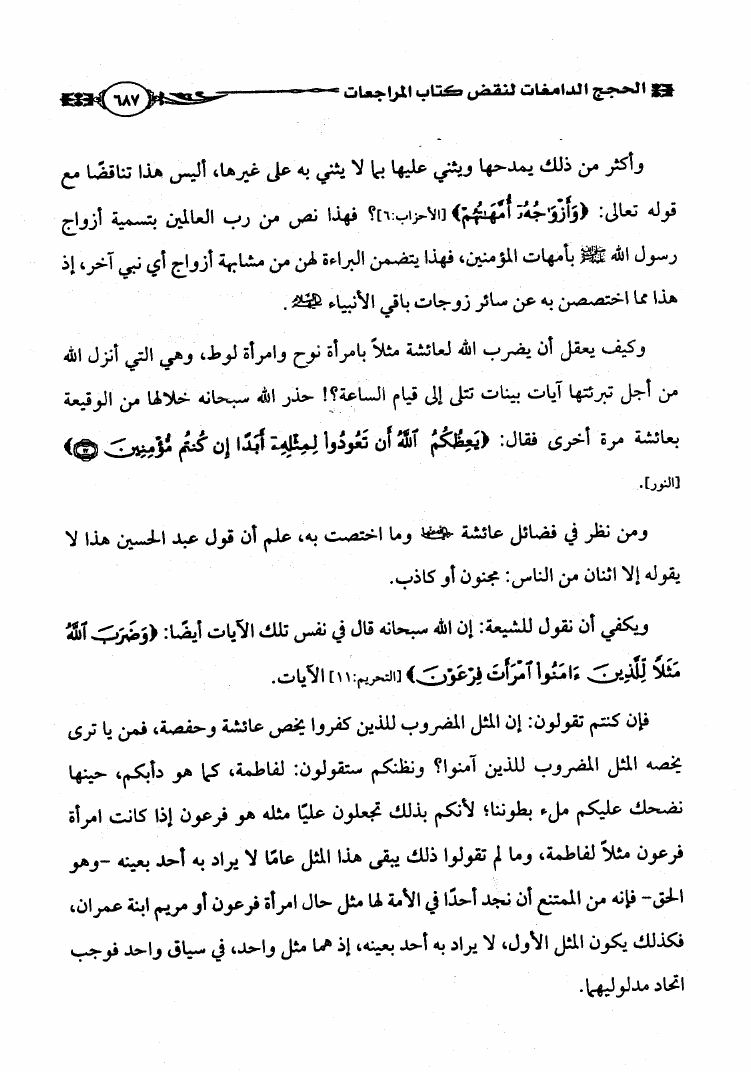 الحجج الدامغات لنقض كتاب المراجعات
٦٨٧
وأكثر من ذلك يمدحها ويثني عليها بما لا يثني به على غيرها، أليس هذا تناقضًا مع
قوله تعالى: ﴿وَأَزْوَاجُهُۥٓ أُمَّهَاتُهُمْ﴾ [الأحزاب:٦]؟ فهذا نص من رب العالمين بتسمية أزواج
رسول الله ﷺ بأمهات المؤمنين، فهذا يتضمن البراءة لهن من مشابهة أزواج أي نبي آخر، إذ
هذا مما اختصصن به عن سائر زوجات باقي الأنبياء .
وكيف يعقل أن يضرب الله لعائشة مثلاً بامرأة نوح وامرأة لوط، وهي التي أنزل الله
من أجل تبرئتها آيات بينات تتلى إلى قيام الساعة؟! حذر الله سبحانه خلالها من الوقيعة
بعائشة مرة أخرى فقال: ﴿يَعِظُكُمُ ٱللَّهُ أَن تَعُودُوا۟ لِمِثْلِهِۦٓ أَبَدًا إِن كُنتُم مُّؤْمِنِينَ ﴾
[النور].
ومن نظر في فضائل عائشة وما اختصت به، علم أن قول عبد الحسين هذا لا
يقوله إلا اثنان من الناس: مجنون أو كاذب.
ويكفي أن نقول للشيعة: إن الله سبحانه قال في نفس تلك الآيات أيضًا: ﴿وَضَرَبَ ٱللَّهُ
مَثَلًا لِّلَّذِينَ ءَامَنُوا۟ ٱمْرَأَتَ فِرْعَوْنَ﴾ [التحريم:١١] الآيات.
فإن كنتم تقولون: إن المثل المضروب للذين كفروا يخص عائشة وحفصة، فمن يا ترى
يخصه المثل المضروب للذين آمنوا؟ ونظنكم ستقولون: لفاطمة، كما هو دأبكم، حينها
نضحك عليكم ملء بطوننا؛ لأنكم بذلك تجعلون عليًا مثله هو فرعون إذا كانت امرأة
فرعون مثلاً لفاطمة، وما لم تقولوا ذلك يبقى هذا المثل عامًا لا يراد به أحد بعينه -وهو
الحق- فإنه من الممتنع أن نجد أحدًا في الأمة لها مثل حال امرأة فرعون أو مريم ابنة عمران،
فكذلك يكون المثل الأول، لا يراد به أحد بعينه، إذ هما مثل واحد، في سياق واحد فوجب
اتحاد مدلوليهما.